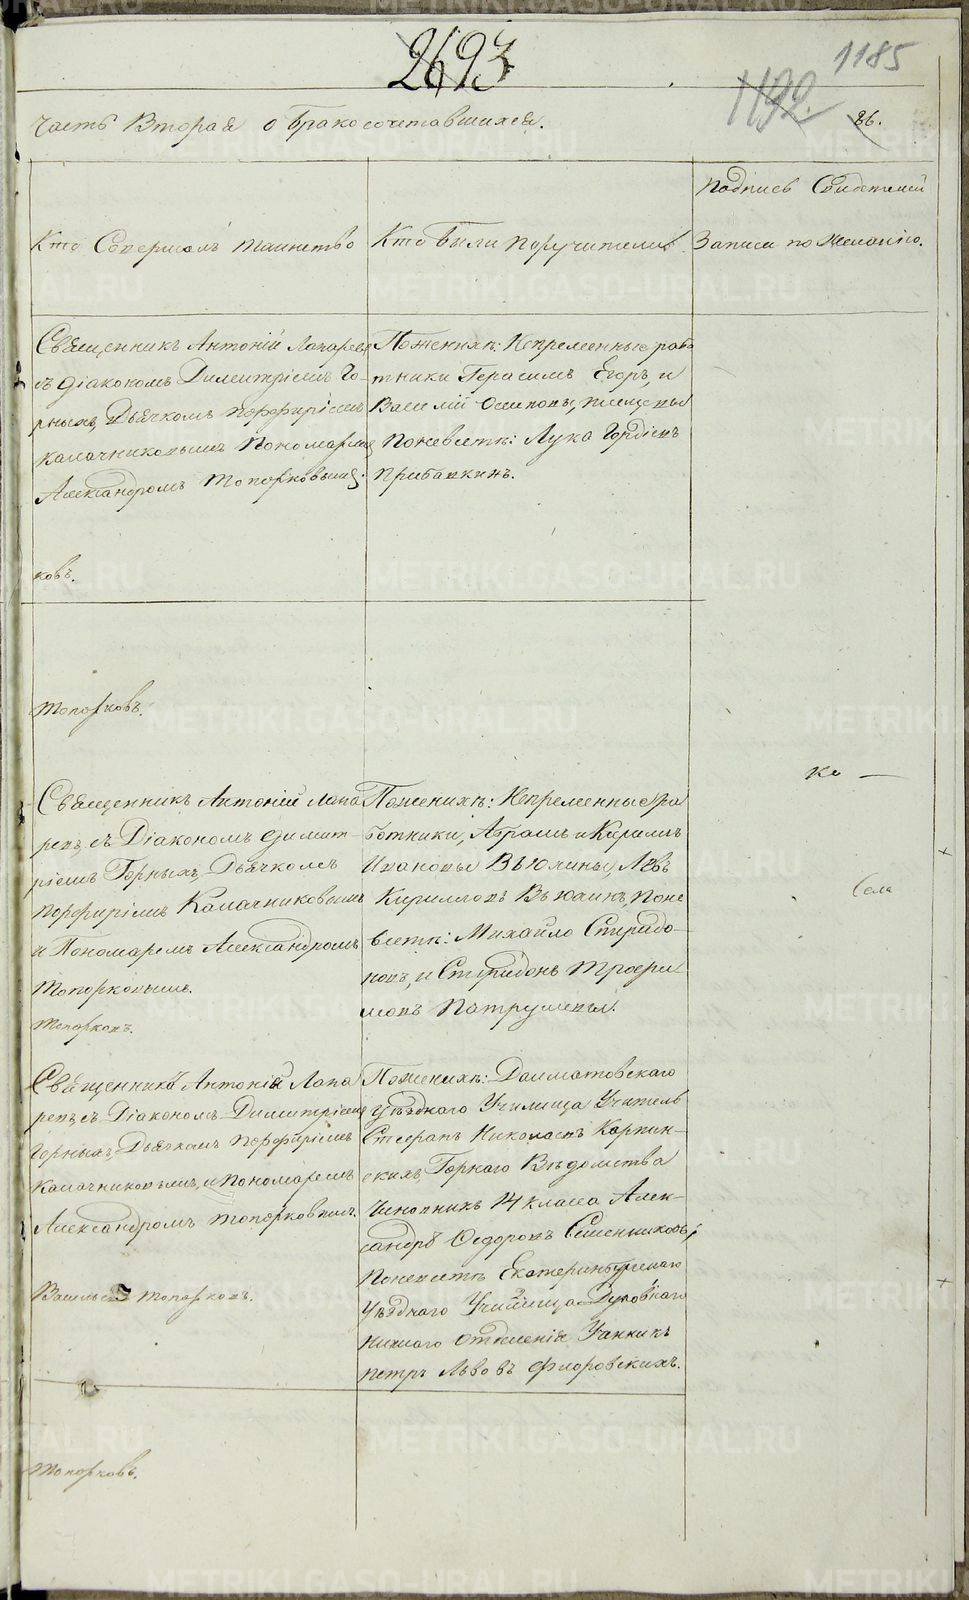 2693
1185
1192.
86.
Часть Вторая о бракосочетавшихся.
Кто Совершалъ таинство
Кто были поручители
Подпись Свидетелей
Записи по желанию.
Священникъ Антоній Лапаревъ
съ діакономъ Димитріемъ Го-
рныхъ, Дьячкомъ Порфиріемъ
Калачниковымъ Пономаремъ
Александромъ Топорковымъ.
ковъ.
По женихѣ: Непременные рабо
тники Герасимъ Егоръ, и
Василій Осиповы,
По невестѣ: Лука Гордѣевъ
Топорковъ.
Священникъ Антоній Лапа
ревъ, съ Діакономъ Димит-
ріемъ Горныхъ, Дьячкомъ
Порфиріемъ Калачниковымъ
и Пономаремъ Александромъ
Топорковымъ.
Топорковъ.
По женихѣ: Непременные ра
ботники, Абрамъ и Кириллъ
Ивановы Вьюхины, Левъ
Кирилловъ Вьюхинъ, По не
вестѣ: Михайло Спиридо-
новъ, и Спиридонъ Трофи
мовъ Патрушевы.
ко —
Села
Священникъ Антоній Лапа
ревъ, съ Діакономъ Димитріемъ
Горныхъ, Дьячкомъ Порфиріемъ
Калачниковымъ, и Пономаремъ
Александромъ Топорковымъ.
Васильевъ Топорковъ.
По женихѣ: Далматовскаго
уѣзднаго Училища Учитель
Стефанъ Николаевъ Карпин-
скихъ, Горнаго Вѣдомства
Чиновникъ 14 класса Алек-
сандръ Федоровъ Семенниковъ,
По невестѣ Екатеринбургскаго
Уѣзднаго Училища Духовнаго
Низшаго отделенія Ученикъ
Петръ Львовъ Флоровскихъ.
Топорковъ.
METRIKI.GASO-URAL.RU